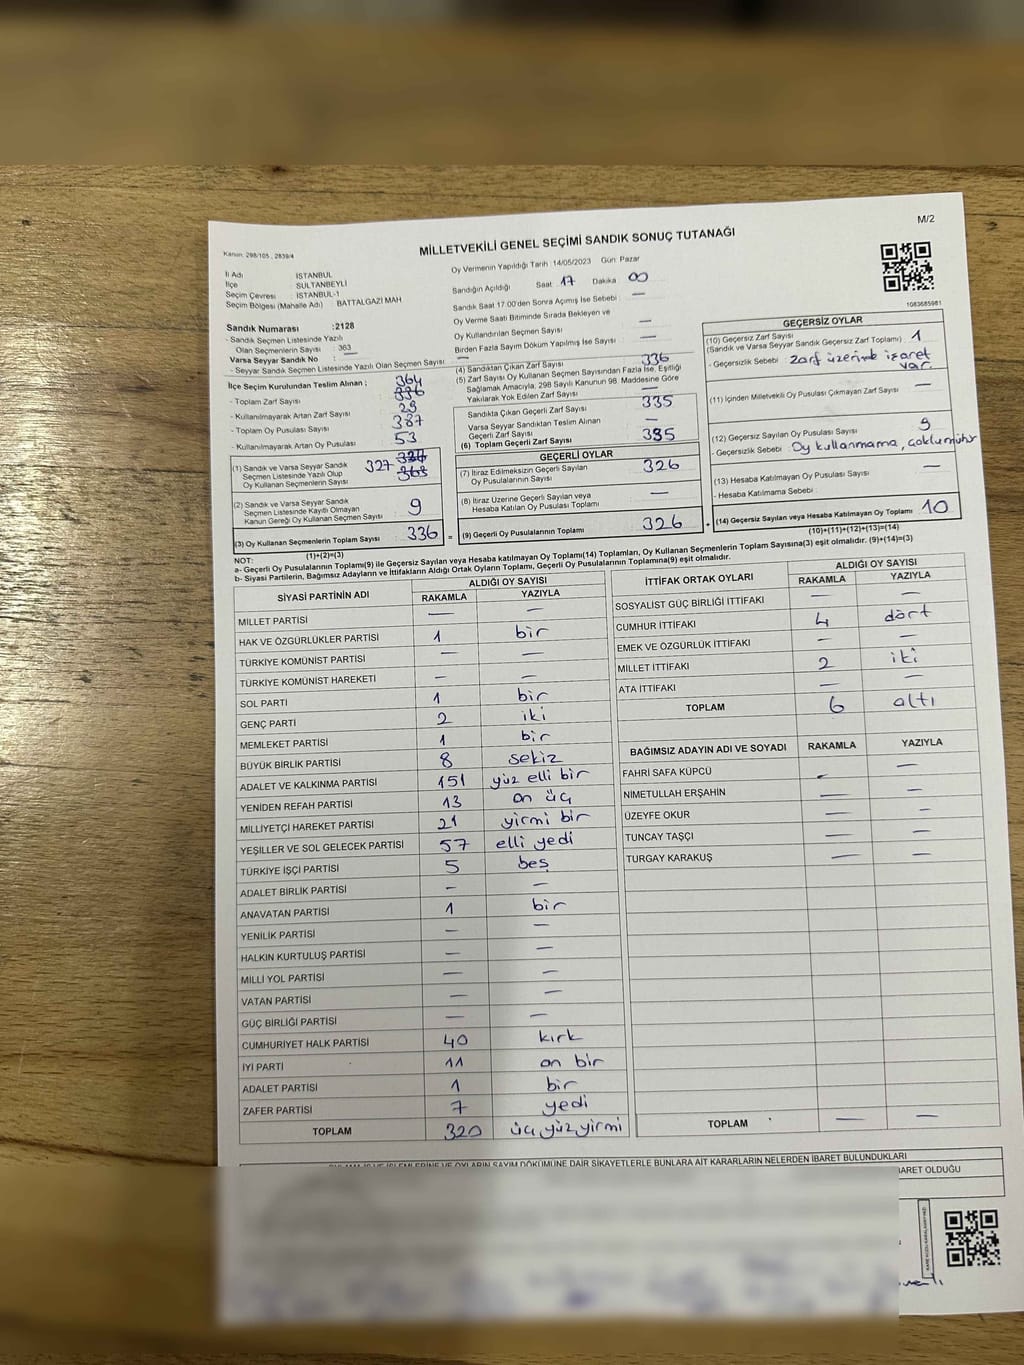 M/2
Kanun: 298/105 , 2839/4
MİLLETVEKİLİ GENEL SEÇİMİ SANDIK SONUÇ TUTANAĞI
İl Adı İSTANBUL
İlçe SULTANBEYLİ
Seçim Çevresi : İSTANBUL-1
Seçim Bölgesi (Mahalle Adı) : BATTALGAZİ MAH
Sandık Numarası :2128
- Sandık Seçmen Listesinde Yazılı
Olan Seçmenlerin Sayısı : 363
Varsa Seyyar Sandık No : —
- Seyyar Sandık Seçmen Listesinde Yazılı Olan Seçmen Sayısı : —
İlçe Seçim Kurulundan Teslim Alınan ;
- Toplam Zarf Sayısı 364
336
- Kullanılmayarak Artan Zarf Sayısı 29
- Toplam Oy Pusulası Sayısı 387
- Kullanılmayarak Artan Oy Pusulası 53
(1) Sandık ve Varsa Seyyar Sandık
Seçmen Listesinde Yazılı Olup
Oy Kullanan Seçmenlerin Sayısı 327 363
(2) Sandık ve Varsa Seyyar Sandık
Seçmen Listesinde Kayıtlı Olmayan
Kanun Gereği Oy Kullanan Seçmen Sayısı 9
(3) Oy Kullanan Seçmenlerin Toplam Sayısı 336
(1)+(2)=(3)
Oy Vermenin Yapıldığı Tarih :14/05/2023 Gün: Pazar
Sandığın Açıldığı Saat 17 Dakika 00
Sandık Saat 17.00'den Sonra Açımış İse Sebebi : —
Oy Verme Saati Bitiminde Sırada Bekleyen ve
Oy Kullandırılan Seçmen Sayısı —
Birden Fazla Sayım Döküm Yapılmış İse Sayısı : —
(4) Sandıktan Çıkan Zarf Sayısı 336
(5) Zarf Sayısı Oy Kullanan Seçmen Sayısından Fazla İse, Eşitliği
Sağlamak Amacıyla, 298 Sayılı Kanunun 98. Maddesine Göre
Yakılarak Yok Edilen Zarf Sayısı —
Sandıkta Çıkan Geçerli Zarf Sayısı 335
Varsa Seyyar Sandıktan Teslim Alınan
Geçerli Zarf Sayısı —
(6) Toplam Geçerli Zarf Sayısı 335
GEÇERLİ OYLAR
(7) İtiraz Edilmeksizin Geçerli Sayılan
Oy Pusulalarının Sayısı 326
(8) İtiraz Üzerine Geçerli Sayılan veya
Hesaba Katılan Oy Pusulası Toplamı —
= (9) Geçerli Oy Pusulalarının Toplamı 326 +
1083685981
GEÇERSİZ OYLAR
(10) Geçersiz Zarf Sayısı
(Sandık ve Varsa Seyyar Sandık Geçersiz Zarf Toplamı) : 1
- Geçersizlik Sebebi : Zarf üzerinde işaret
var
(11) İçinden Milletvekili Oy Pusulası Çıkmayan Zarf Sayısı —
(12) Geçersiz Sayılan Oy Pusulası Sayısı 9
- Geçersizlik Sebebi : Oy kullanmama, çoklu mühür
(13) Hesaba Katılmayan Oy Pusulası Sayısı —
- Hesaba Katılmama Sebebi :
(14) Geçersiz Sayılan veya Hesaba Katılmayan Oy Toplamı 10
(10)+(11)+(12)+(13)=(14)
NOT:
a- Geçerli Oy Pusulalarının Toplamı(9) ile Geçersiz Sayılan veya Hesaba katılmayan Oy Toplamı(14) Toplamları, Oy Kullanan Seçmenlerin Toplam Sayısına(3) eşit olmalıdır. (9)+(14)=(3)
b- Siyasi Partilerin, Bağımsız Adayların ve İttifakların Aldığı Ortak Oyların Toplamı, Geçerli Oy Pusulalarının Toplamına(9) eşit olmalıdır.
SİYASİ PARTİNİN ADI ALDIĞI OY SAYISI
RAKAMLA YAZIYLA
MİLLET PARTİSİ — —
HAK VE ÖZGÜRLÜKLER PARTİSİ 1 bir
TÜRKİYE KOMÜNİST PARTİSİ — —
TÜRKİYE KOMÜNİST HAREKETİ — —
SOL PARTİ 1 bir
GENÇ PARTİ 2 iki
MEMLEKET PARTİSİ 1 bir
BÜYÜK BİRLİK PARTİSİ 8 sekiz
ADALET VE KALKINMA PARTİSİ 151 yüz elli bir
YENİDEN REFAH PARTİSİ 13 on üç
MİLLİYETÇİ HAREKET PARTİSİ 21 yirmi bir
YEŞİLLER VE SOL GELECEK PARTİSİ 57 elli yedi
TÜRKİYE İŞÇİ PARTİSİ 5 beş
ADALET BİRLİK PARTİSİ — —
ANAVATAN PARTİSİ 1 bir
YENİLİK PARTİSİ — —
HALKIN KURTULUŞ PARTİSİ — —
MİLLİ YOL PARTİSİ — —
VATAN PARTİSİ — —
GÜÇ BİRLİĞİ PARTİSİ — —
CUMHURİYET HALK PARTİSİ 40 kırk
İYİ PARTİ 11 on bir
ADALET PARTİSİ 1 bir
ZAFER PARTİSİ 7 yedi
TOPLAM 320 üç yüz yirmi
İTTİFAK ORTAK OYLARI ALDIĞI OY SAYISI
RAKAMLA YAZIYLA
SOSYALİST GÜÇ BİRLİĞİ İTTİFAKI — —
CUMHUR İTTİFAKI 4 dört
EMEK VE ÖZGÜRLÜK İTTİFAKI — —
MİLLET İTTİFAKI 2 iki
ATA İTTİFAKI — —
TOPLAM 6 altı
BAĞIMSIZ ADAYIN ADI VE SOYADI RAKAMLA YAZIYLA
FAHRİ SAFA KÜPCÜ — —
NİMETULLAH ERŞAHİN — —
ÜZEYFE OKUR — —
TUNCAY TAŞÇI — —
TURGAY KARAKUŞ — —
TOPLAM — —
DÖKÜMÜNE DAİR ŞİKAYETLERLE BUNLARA AİT KARARLARIN NELERDEN İBARET BULUNDUKLARI
BARET OLDUĞU